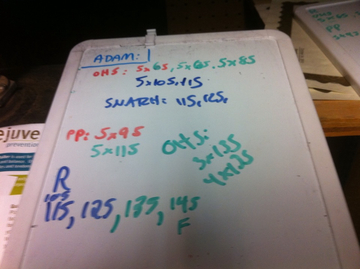 ADAM:
OHS: 5x65, 5x65, 5x85
5x105, 115
SNATCH: 115, 125,
PP: 5x95
5x115
OHS:
3x135
4x125
R
115, 125, 135, 145
F
ejuve
prevention
PP